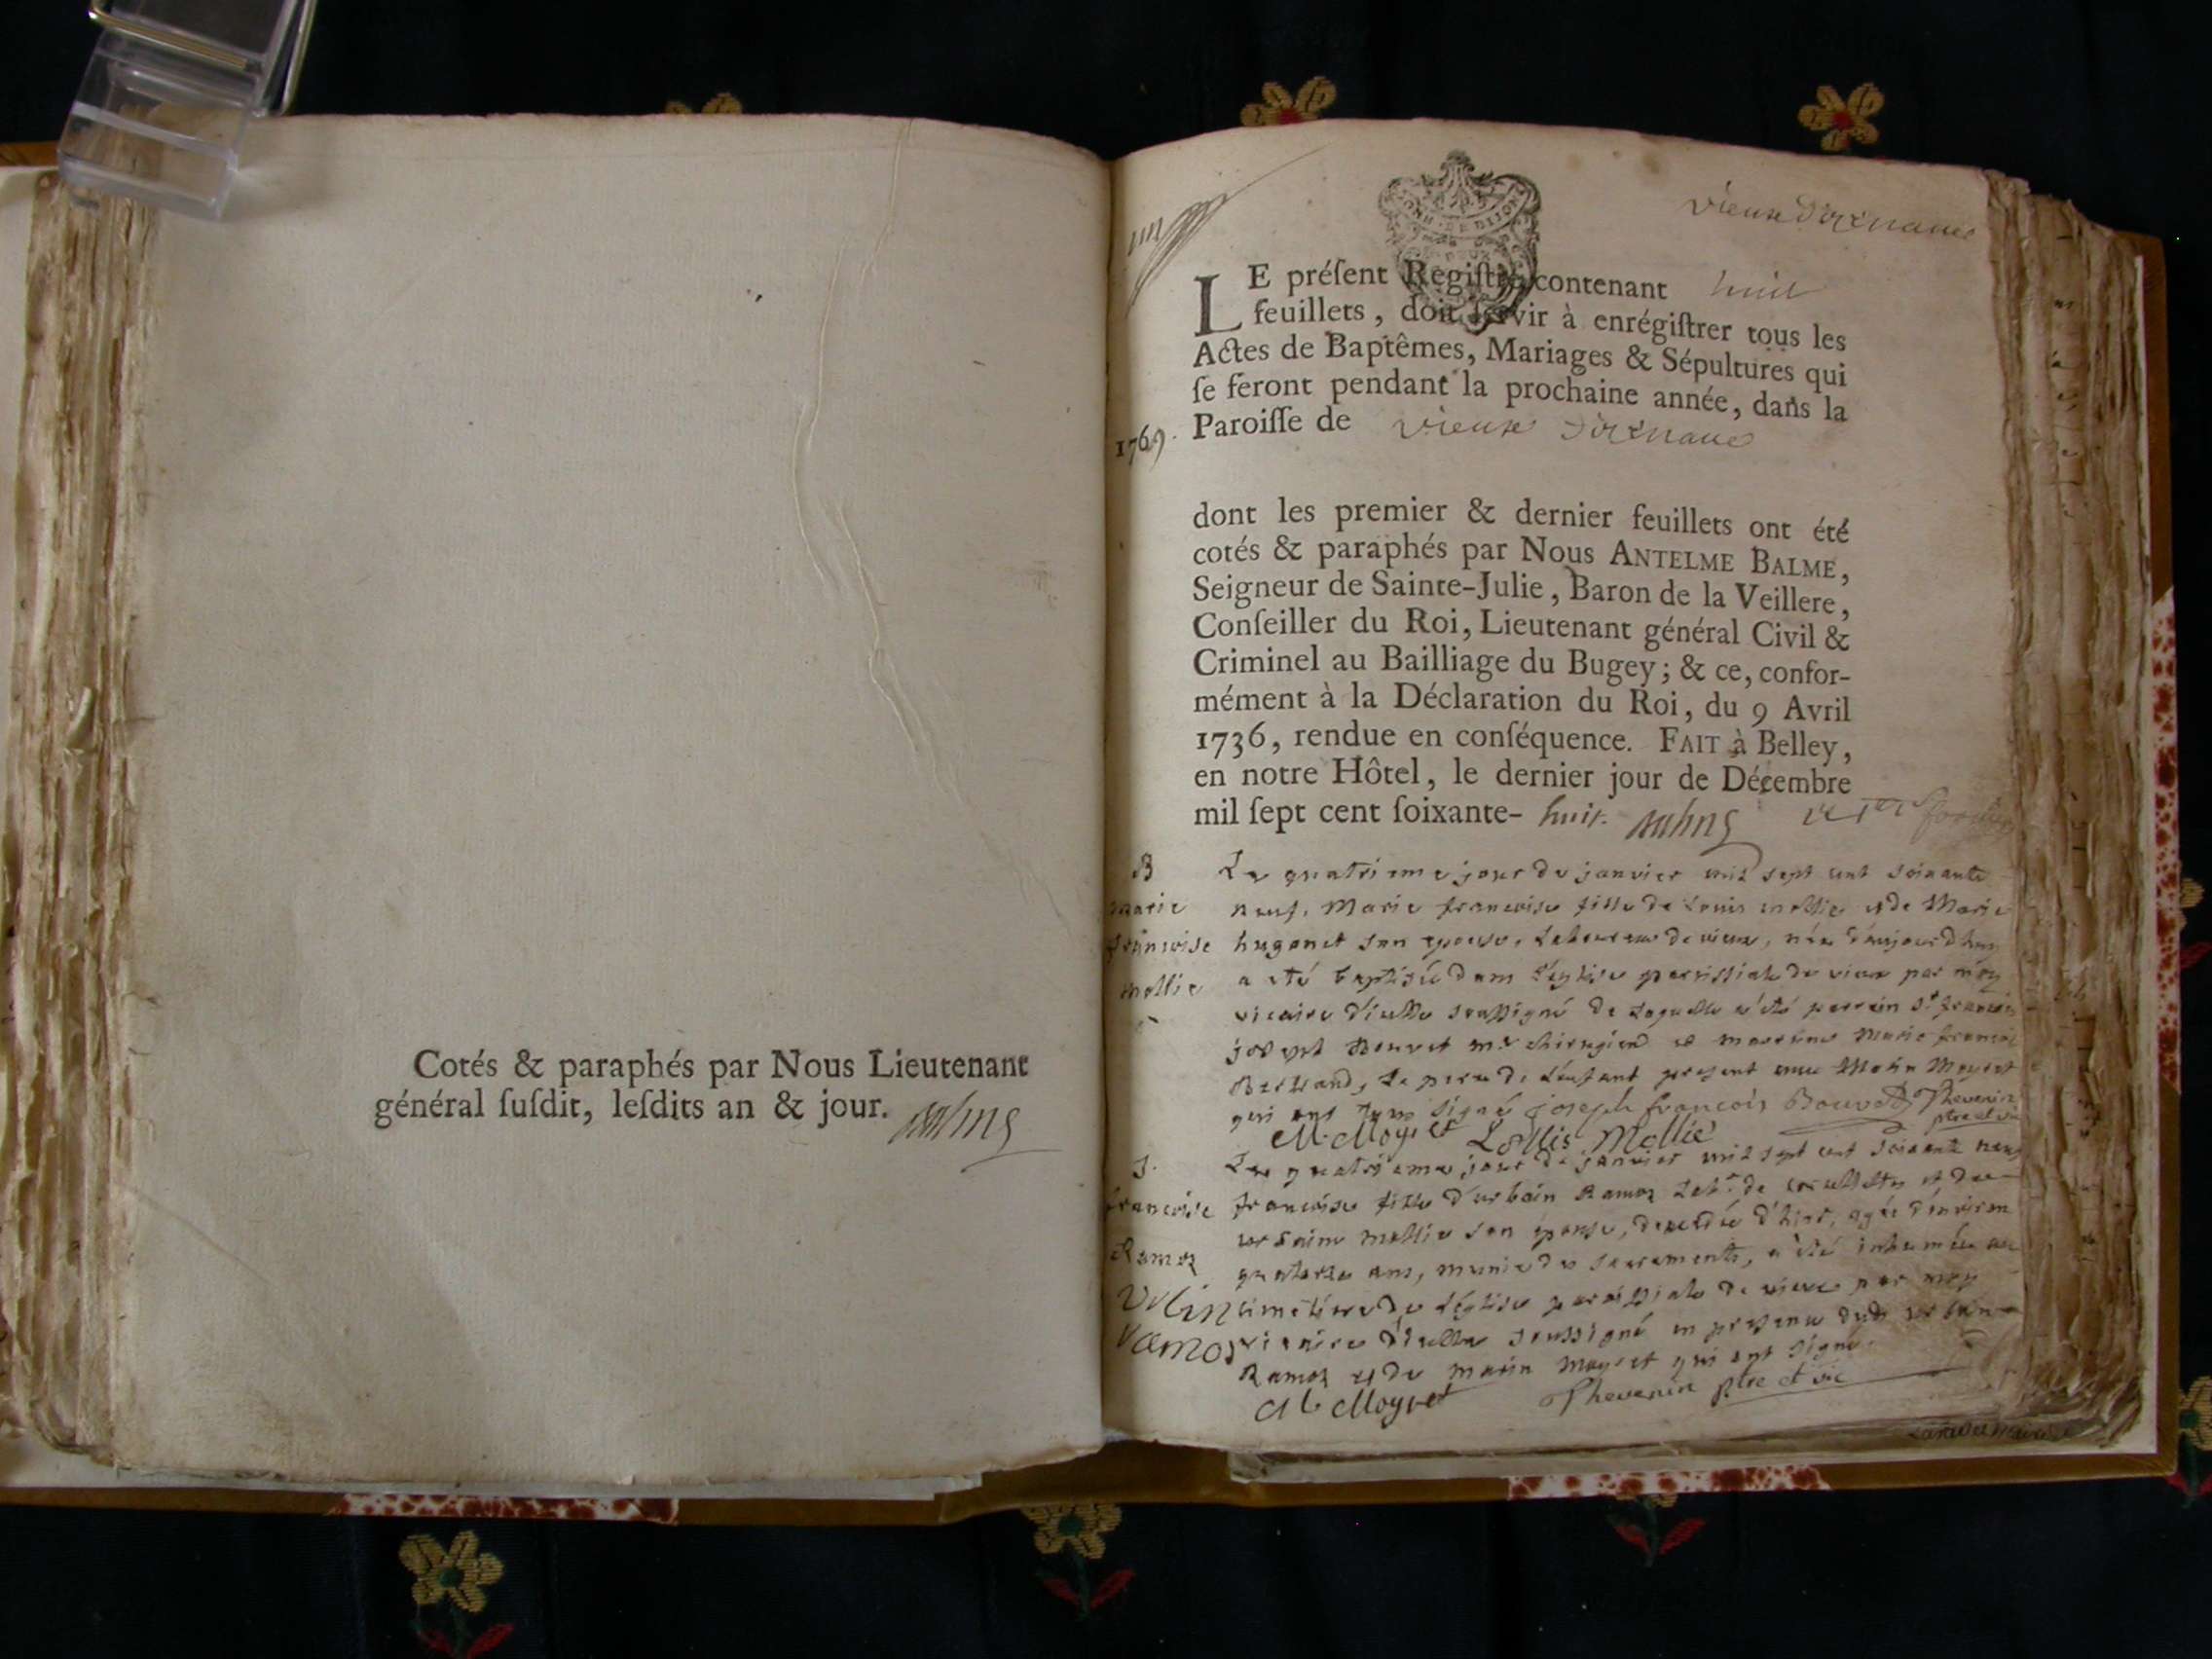 Cotés & paraphés par Nous Lieutenant
général ſuſdit, leſdits an & jour.
GENER. DE DIJON
vieux d'izenave
LE préſent Regiſtre contenant huit
feuillets, doit ſervir à enrégiſtrer tous les
Actes de Baptêmes, Mariages & Sépultures qui
ſe feront pendant la prochaine année, dans la
1769. Paroiſſe de vieux d'izenave
dont les premier & dernier feuillets ont été
cotés & paraphés par Nous ANTELME BALME,
Seigneur de Sainte-Julie, Baron de la Veillere,
Conſeiller du Roi, Lieutenant général Civil &
Criminel au Bailliage du Bugey; & ce, confor-
mément à la Déclaration du Roi, du 9 Avril
1736, rendue en conſéquence. FAIT à Belley,
en notre Hôtel, le dernier jour de Décembre
mil ſept cent ſoixante- huit.
B
marie
françoise
mollie
Le quatrieme jour de janvier mil sept cent soixante
neuf, Marie françoise fille de Louis mollie et de Marie
hugonet son epouse, Laboureur de vieux, née d'aujourdhuy
a été baptisée dans l'église parrissiale de vieux par moy
vicaire d'icelle soussigné de laquelle a été parrain Sr françois
joseph Bouvet me chirugien et marraine Marie françoise
Bertrand, Le pere de l'enfant present avec Marin Moyret
qui ont tous signé joseph françois Bouvet Thevenin
ptre et vic
M. Moyret Lollis Mollie
S.
françoise
Ramoz
Le quatrieme jour de janvier mil sept cent soixante neuf
françoise fille d'urbain Ramoz Labr. de et de
ursaine mollie son epouse, decedée d'hier, agée d'environ
quatorze ans, munie des sacrements, a été inhumée au
cimetiere de L'église paroissiale de vieux par moy
vicaire d'icelle soussigné en presence dudt urbain
Ramoz et de marin Moyret qui ont signé.
Moyret Thevenin ptre et vic